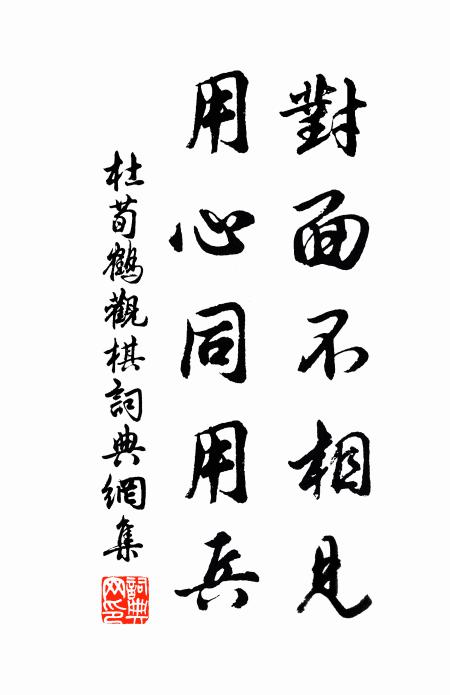 對面不相見
用心同用兵
杜荀鶴觀棋詞典網集
詞典网印